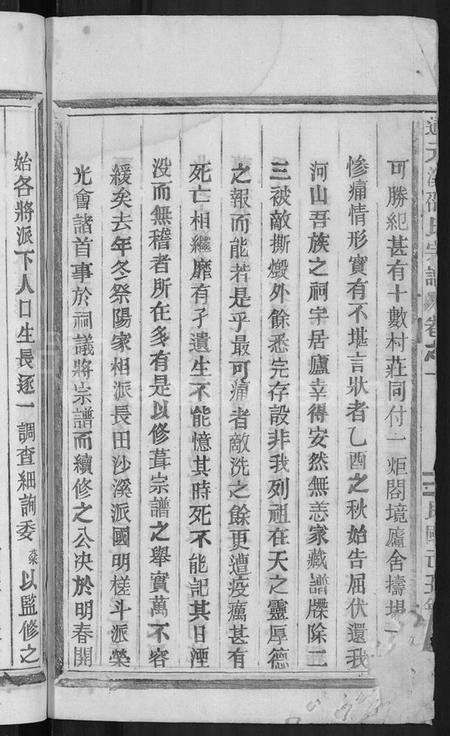 可勝紀甚有十數村莊同付一炬閤境廬舍擣場一
慘痛情形實有不堪言狀者乙酉之秋始告屈伏還我
河山吾族之祠宇居廬幸得安然無恙家藏譜牒除二
三被敵撕燬外餘悉完存設非我列祖在天之靈厚德
之報而能若是乎最可痛者敵洗之餘更遭疫癘甚有
死亡相繼靡有孑遺生不能憶其時死不能記其日湮
没而無稽者所在多有是以修葺宗譜之舉實萬不容
緩矣去年冬祭陽家相派長田沙溪派國明槎斗派榮
光會諸首事於祠議將宗譜而續修之公決於明春開
始各將派下人口生長逐一調查細詢委棻以監修之